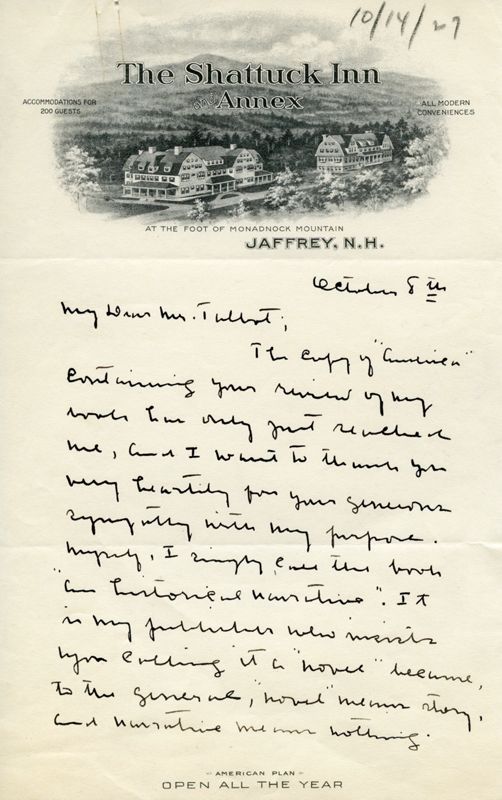 10/14/27
The Shattuck Inn
and Annex
ACCOMMODATIONS FOR
200 GUESTS
ALL MODERN
CONVENIENCES
AT THE FOOT OF MONADNOCK MOUNTAIN
JAFFREY, N.H.
October 8th
My Dear Mr. Talbot;
The copy of "America"
containing your review of my
book has only just reached
me, and I want to thank you
very heartily for your generous
sympathy with my purpose.
Myself, I simply call the book
"an historical narrative". It
is my publisher who insists
upon calling it a "novel" because,
to the general, "novel" means story,
and narrative means nothing.
AMERICAN PLAN
OPEN ALL THE YEAR